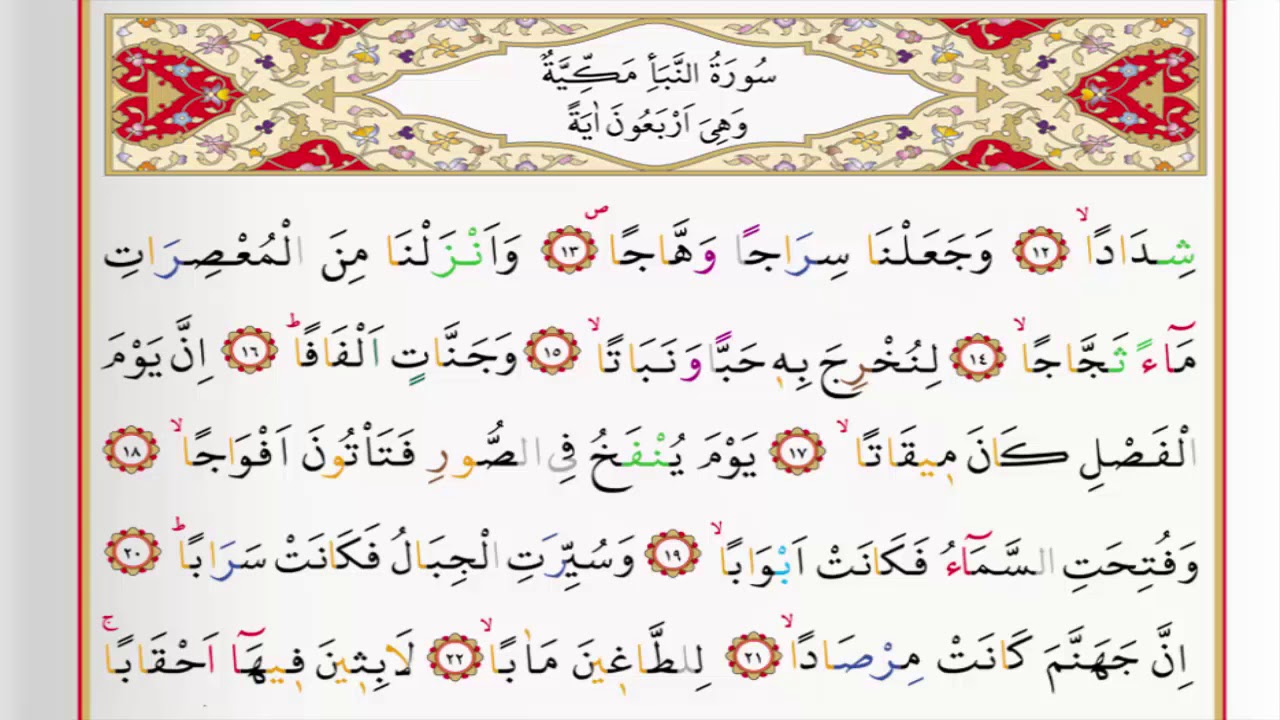 سُورَةُ النَّبَأِ مَكِّيَّةٌ
وَهِىَ اَرْبَعُونَ اٰيَةً
شِدَادًاۙ ﴿١٢﴾ وَجَعَلْنَا سِرَاجًا وَهَّاجًاۖ ﴿١٣﴾ وَاَنْزَلْنَا مِنَ الْمُعْصِرَاتِ
مَٓاءً ثَجَّاجًاۙ ﴿١٤﴾ لِنُخْرِجَ بِهٖ حَبًّا وَنَبَاتًاۙ ﴿١٥﴾ وَجَنَّاتٍ اَلْفَافًاؕ ﴿١٦﴾ اِنَّ يَوْمَ
الْفَصْلِ كَانَ مٖيقَاتًاۙ ﴿١٧﴾ يَوْمَ يُنْفَخُ فِى الصُّورِ فَتَأْتُونَ اَفْوَاجًاۙ ﴿١٨﴾
وَفُتِحَتِ السَّمَٓاءُ فَكَانَتْ اَبْوَابًاۙ ﴿١٩﴾ وَسُيِّرَتِ الْجِبَالُ فَكَانَتْ سَرَابًاؕ ﴿٢٠﴾
اِنَّ جَهَنَّمَ كَانَتْ مِرْصَادًاۙ ﴿٢١﴾ لِلطَّاغٖينَ مَاٰبًاۙ ﴿٢٢﴾ لَابِثٖينَ فٖيهَٓا اَحْقَابًاۚ